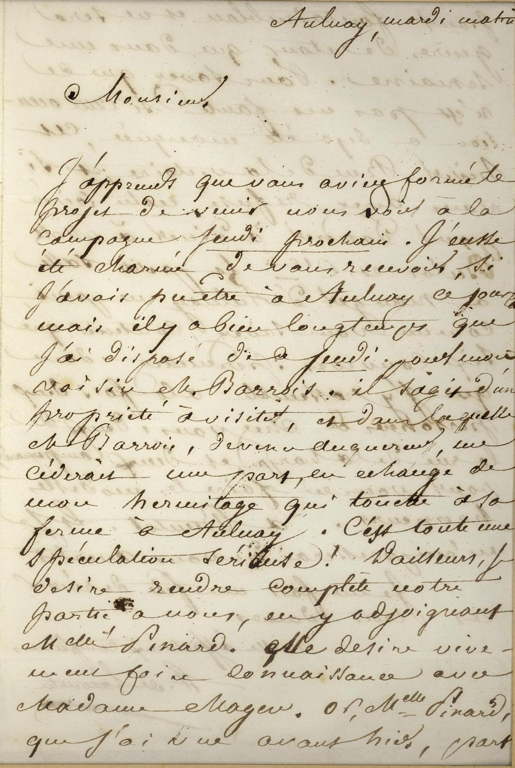 Aulnay, mardi matin
Monsieur,
J'apprends que vous aviez formé le
projet de venir nous voir à la
campagne jeudi prochain. J'eusse
été charmé de vous recevoir, si
j'avais pu être à Aulnay ce jour,
mais il y a bien longtemps que
j'ai disposé de ce jeudi pour mon
voisin M. Barrois. il s'agit d'un
propriété à visiter, et dans laquelle
M. Barrois, devenu acquéreur, me
céderait une part, en echange de
mon hermitage qui touche à sa
ferme à Aulnay. C'est toute une
spéculation sérieuse! D'ailleurs, je
desire rendre complete notre
partie a nous, en y adjoignant
Melle Pinard. Elle desire vive-
ment faire connaissance avec
Madame Magen. Or, Melle Pinard,
que j'ai vue avant hier, part